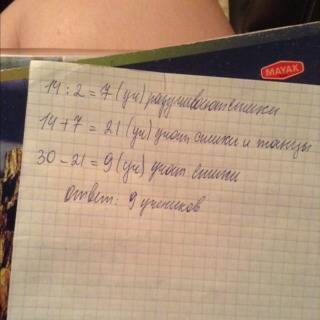 MAYAK
14 : 2 = 7 (уч) разучивают стихи
14 + 7 = 21 (уч) учат стихи и танцы
30 - 21 = 9 (уч) учат стихи
ответ: 9 учеников